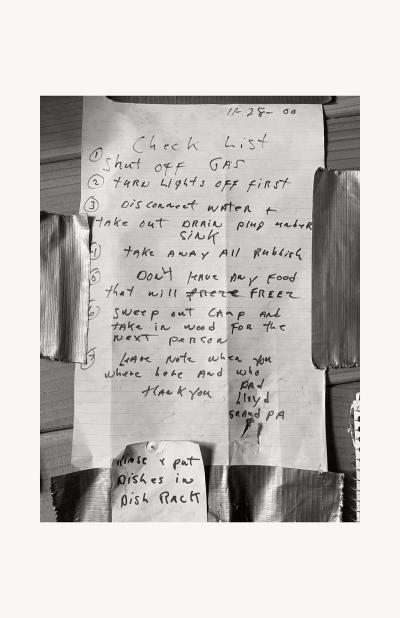 11-28-00
Check List
① Shut off GAS
② turn Lights off first
③ Disconnect water +
take out DRAIN plug under
SINK
④ take away All Rubbish
⑤ DON't leave Any Food
that will freze FREEZ
⑥ Sweep out CAMP And
take in wood for the
Next person
⑦ leave Note when you
where here And who
thank you DAD
Lloyd
GRANd PA
Rinse & put
Dishes in
Dish Rack